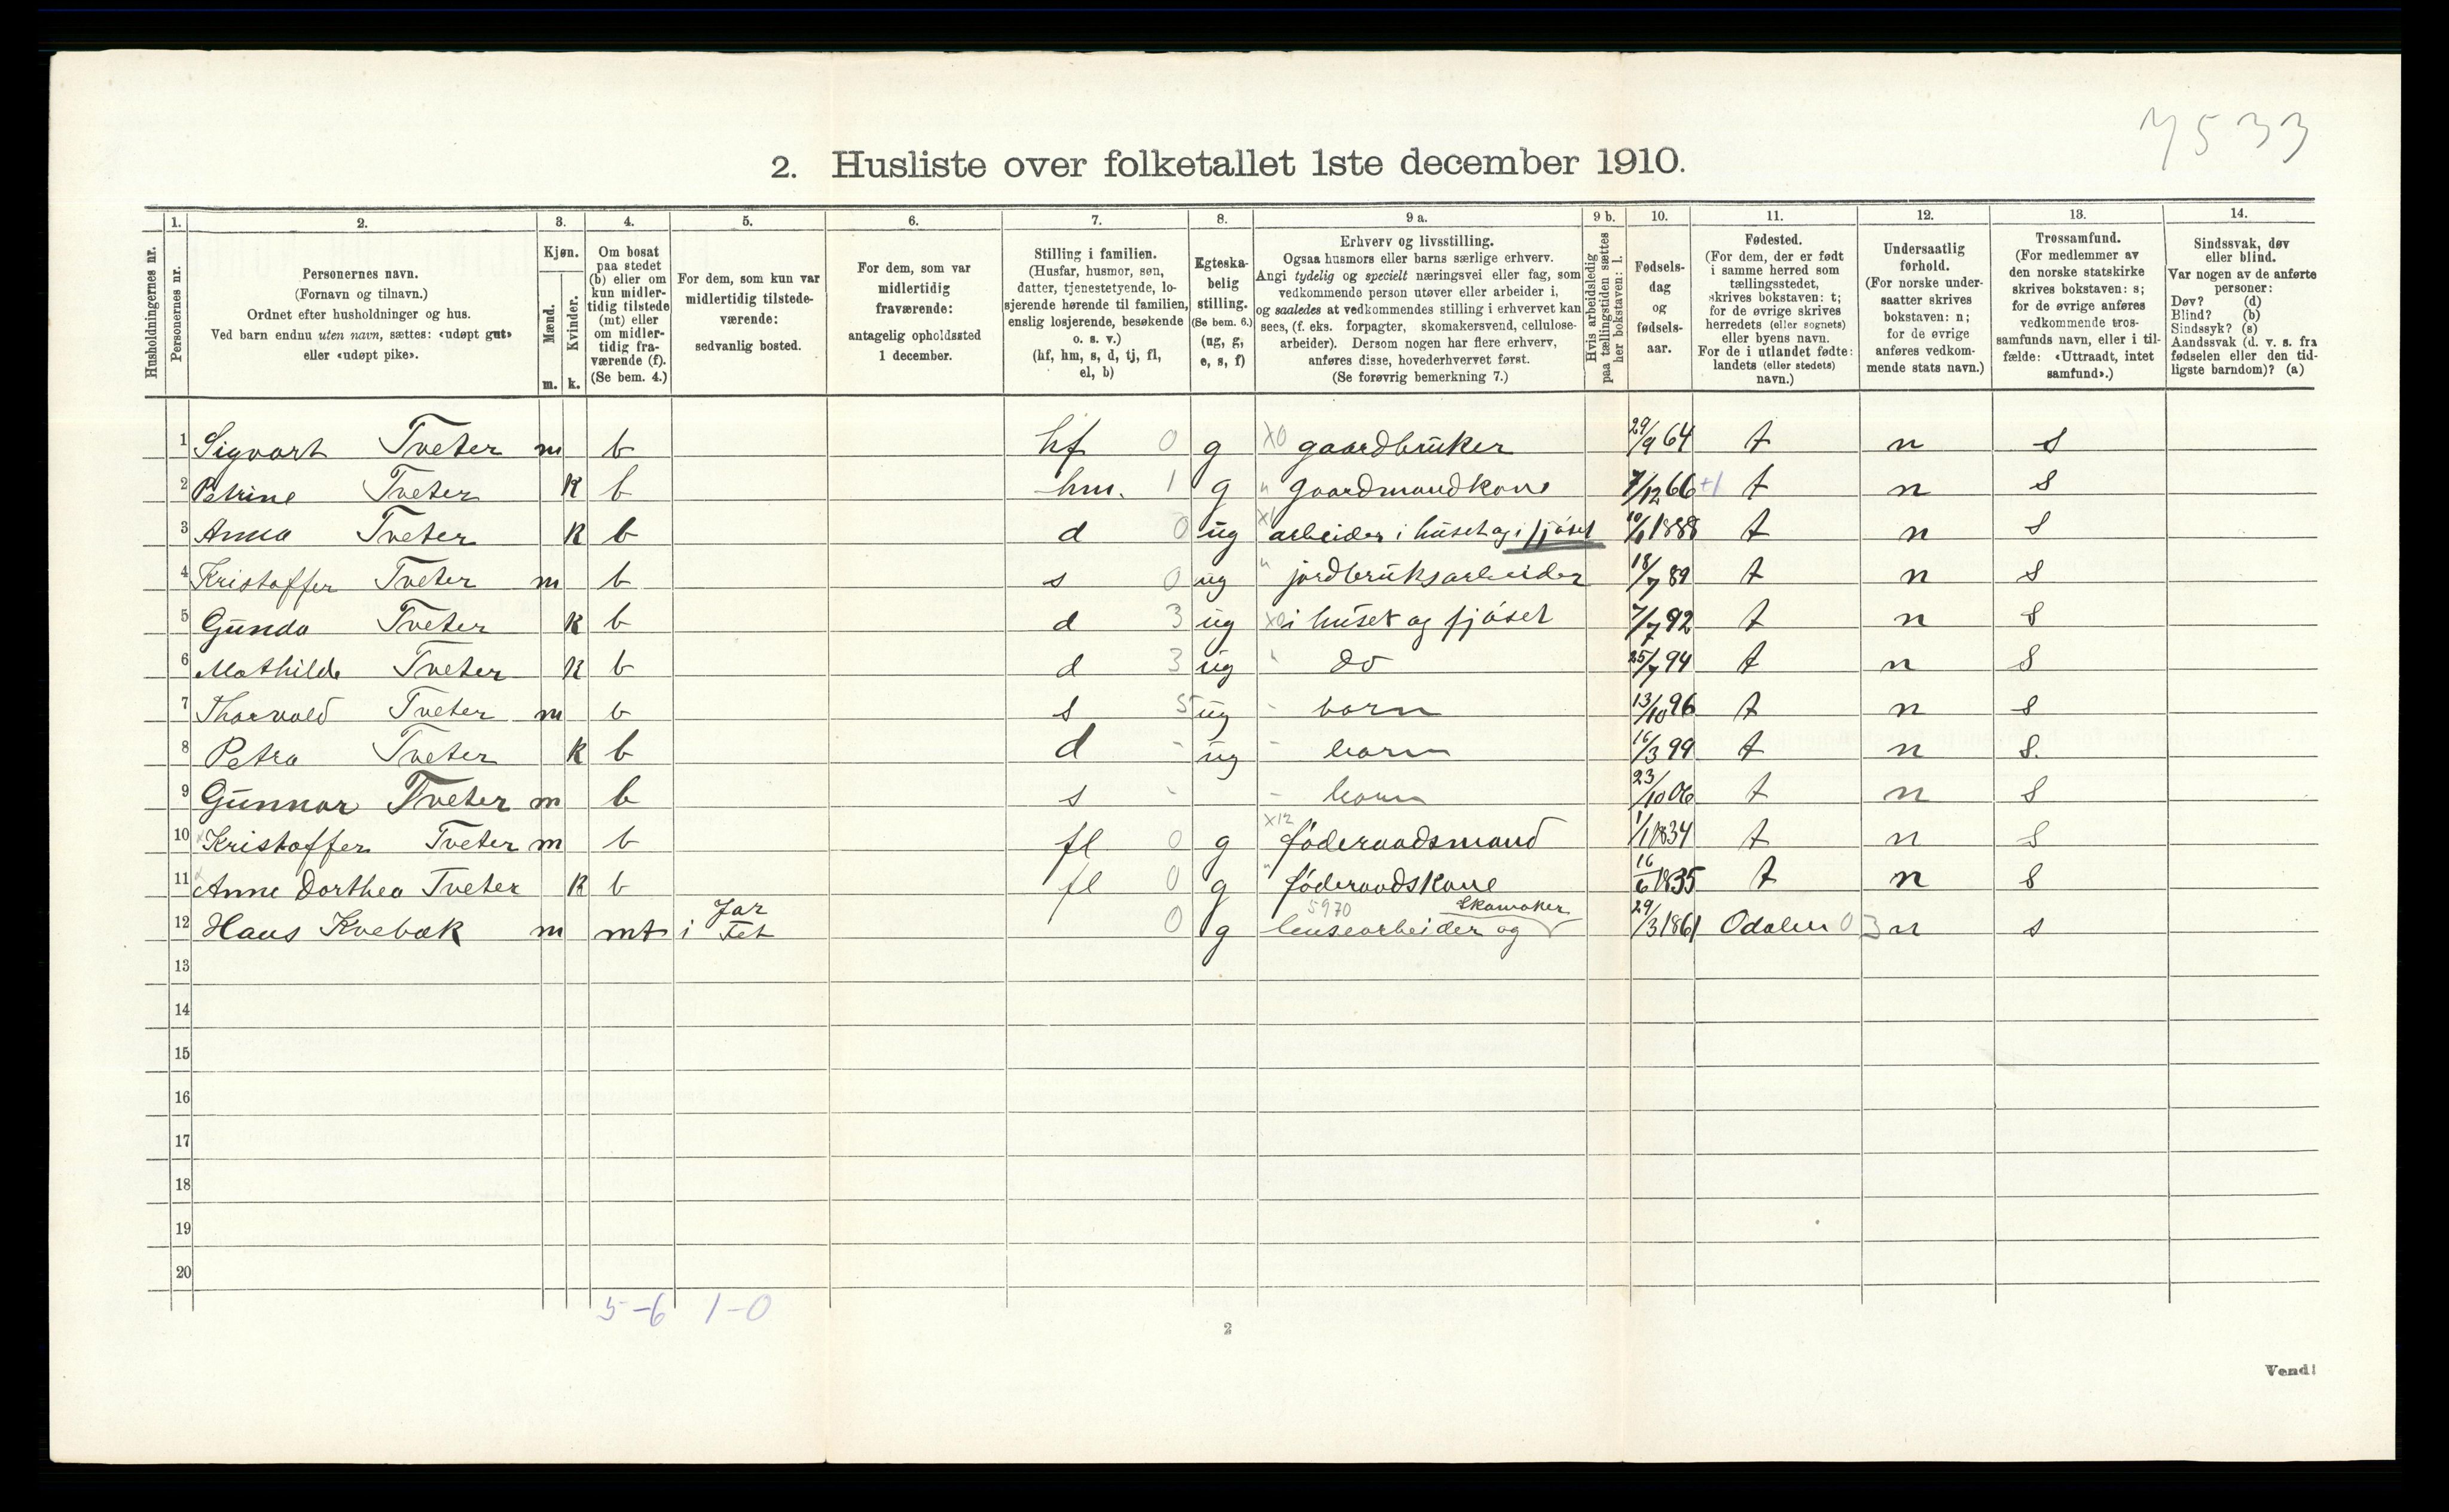 7533
2. Husliste over folketallet 1ste december 1910.
1. 2. 3. 4. 5. 6. 7. 8. 9 a. 9 b. 10. 11. 12. 13. 14.
Husholdningernes nr.
Personernes nr.
Personernes navn.
(Fornavn og tilnavn.)
Ordnet efter husholdninger og hus.
Ved barn endnu uten navn, sættes: «udøpt gut»
eller «udøpt pike».
Kjøn.
Mænd.
Kvinder.
m. k.
Om bosat
paa stedet
(b) eller om
kun midler-
tidig tilstede
(mt) eller
om midler-
tidig fra-
værende (f).
(Se bem. 4.)
For dem, som kun var
midlertidig tilstede-
værende:
sedvanlig bosted.
For dem, som var
midlertidig
fraværende:
antagelig opholdssted
1 december.
Stilling i familien.
(Husfar, husmor, søn,
datter, tjenestetyende, lo-
sjerende hørende til familien,
enslig losjerende, besøkende
o. s. v.)
(hf, hm, s, d, tj, fl,
el, b)
Egteska-
belig
stilling.
(Se bem. 6.)
(ug, g,
e, s, f)
Erhverv og livsstilling.
Ogsaa husmors eller barns særlige erhverv.
Angi tydelig og specielt næringsvei eller fag, som
vedkommende person utøver eller arbeider i,
og saaledes at vedkommendes stilling i erhvervet kan
sees, (f. eks. forpagter, skomakersvend, cellulose-
arbeider). Dersom nogen har flere erhverv,
anføres disse, hovederhvervet først.
(Se forøvrig bemerkning 7.)
Hvis arbeidsledig
paa tællingstiden sættes
her bokstaven: l.
Fødsels-
dag
og
fødsels-
aar.
Fødested.
(For dem, der er født
i samme herred som
tællingsstedet,
skrives bokstaven: t;
for de øvrige skrives
herredets (eller sognets)
eller byens navn.
For de i utlandet fødte:
landets (eller stedets)
navn.)
Undersaatlig
forhold.
(For norske under-
saatter skrives
bokstaven: n;
for de øvrige
anføres vedkom-
mende stats navn.)
Trossamfund.
(For medlemmer av
den norske statskirke
skrives bokstaven: s;
for de øvrige anføres
vedkommende tros-
samfunds navn, eller i til-
fælde: «Uttraadt, intet
samfund».)
Sindssvak, døv
eller blind.
Var nogen av de anførte
personer:
Døv? (d)
Blind? (b)
Sindssyk? (s)
Aandssvak (d. v. s. fra
fødselen eller den tid-
ligste barndom)? (a)
1 Sigvart Tveter m b hf 0 g X0 gaardbruker 29/9 64 t n s
2 Petrine Tveter k b hm. 1 g " gaardmandkone 7/12 66 +1 t n s
3 Anna Tveter k b d 0 ug X1 arbeider i huset og i fjøset 1888 t n s
4 Kristoffer Tveter m b s 0 ug " jordbruksarbeider 18/7 89 t n s
5 Gunda Tveter k b d 3 ug i huset og fjøset 7/7 92 t n s
6 Mathilde Tveter k b d 3 ug " do 25/7 94 t n s
7 Thorvald Tveter m b s 5 ug - barn 13/10 96 t n s
8 Petra Tveter k b d - ug - barn 16/3 99 t n s.
9 Gunnar Tveter m b s - - barn 23/10 06 t n s
10 x Kristoffer Tveter m b fl 0 g X12 føderaadsmand 1/1 1834 t n s
11 x Anne Dorthea Tveter k b fl 0 g " føderaadskone 16/6 1835 t n s
Jar 5970 Skomaker
12 Hans Kvebæk m mt i Fet 0 g lensearbeider og 29/3 1861 Odalen 03 n s
13
14
15
16
17
18
19
20
5-6 1-0
2
Vend!